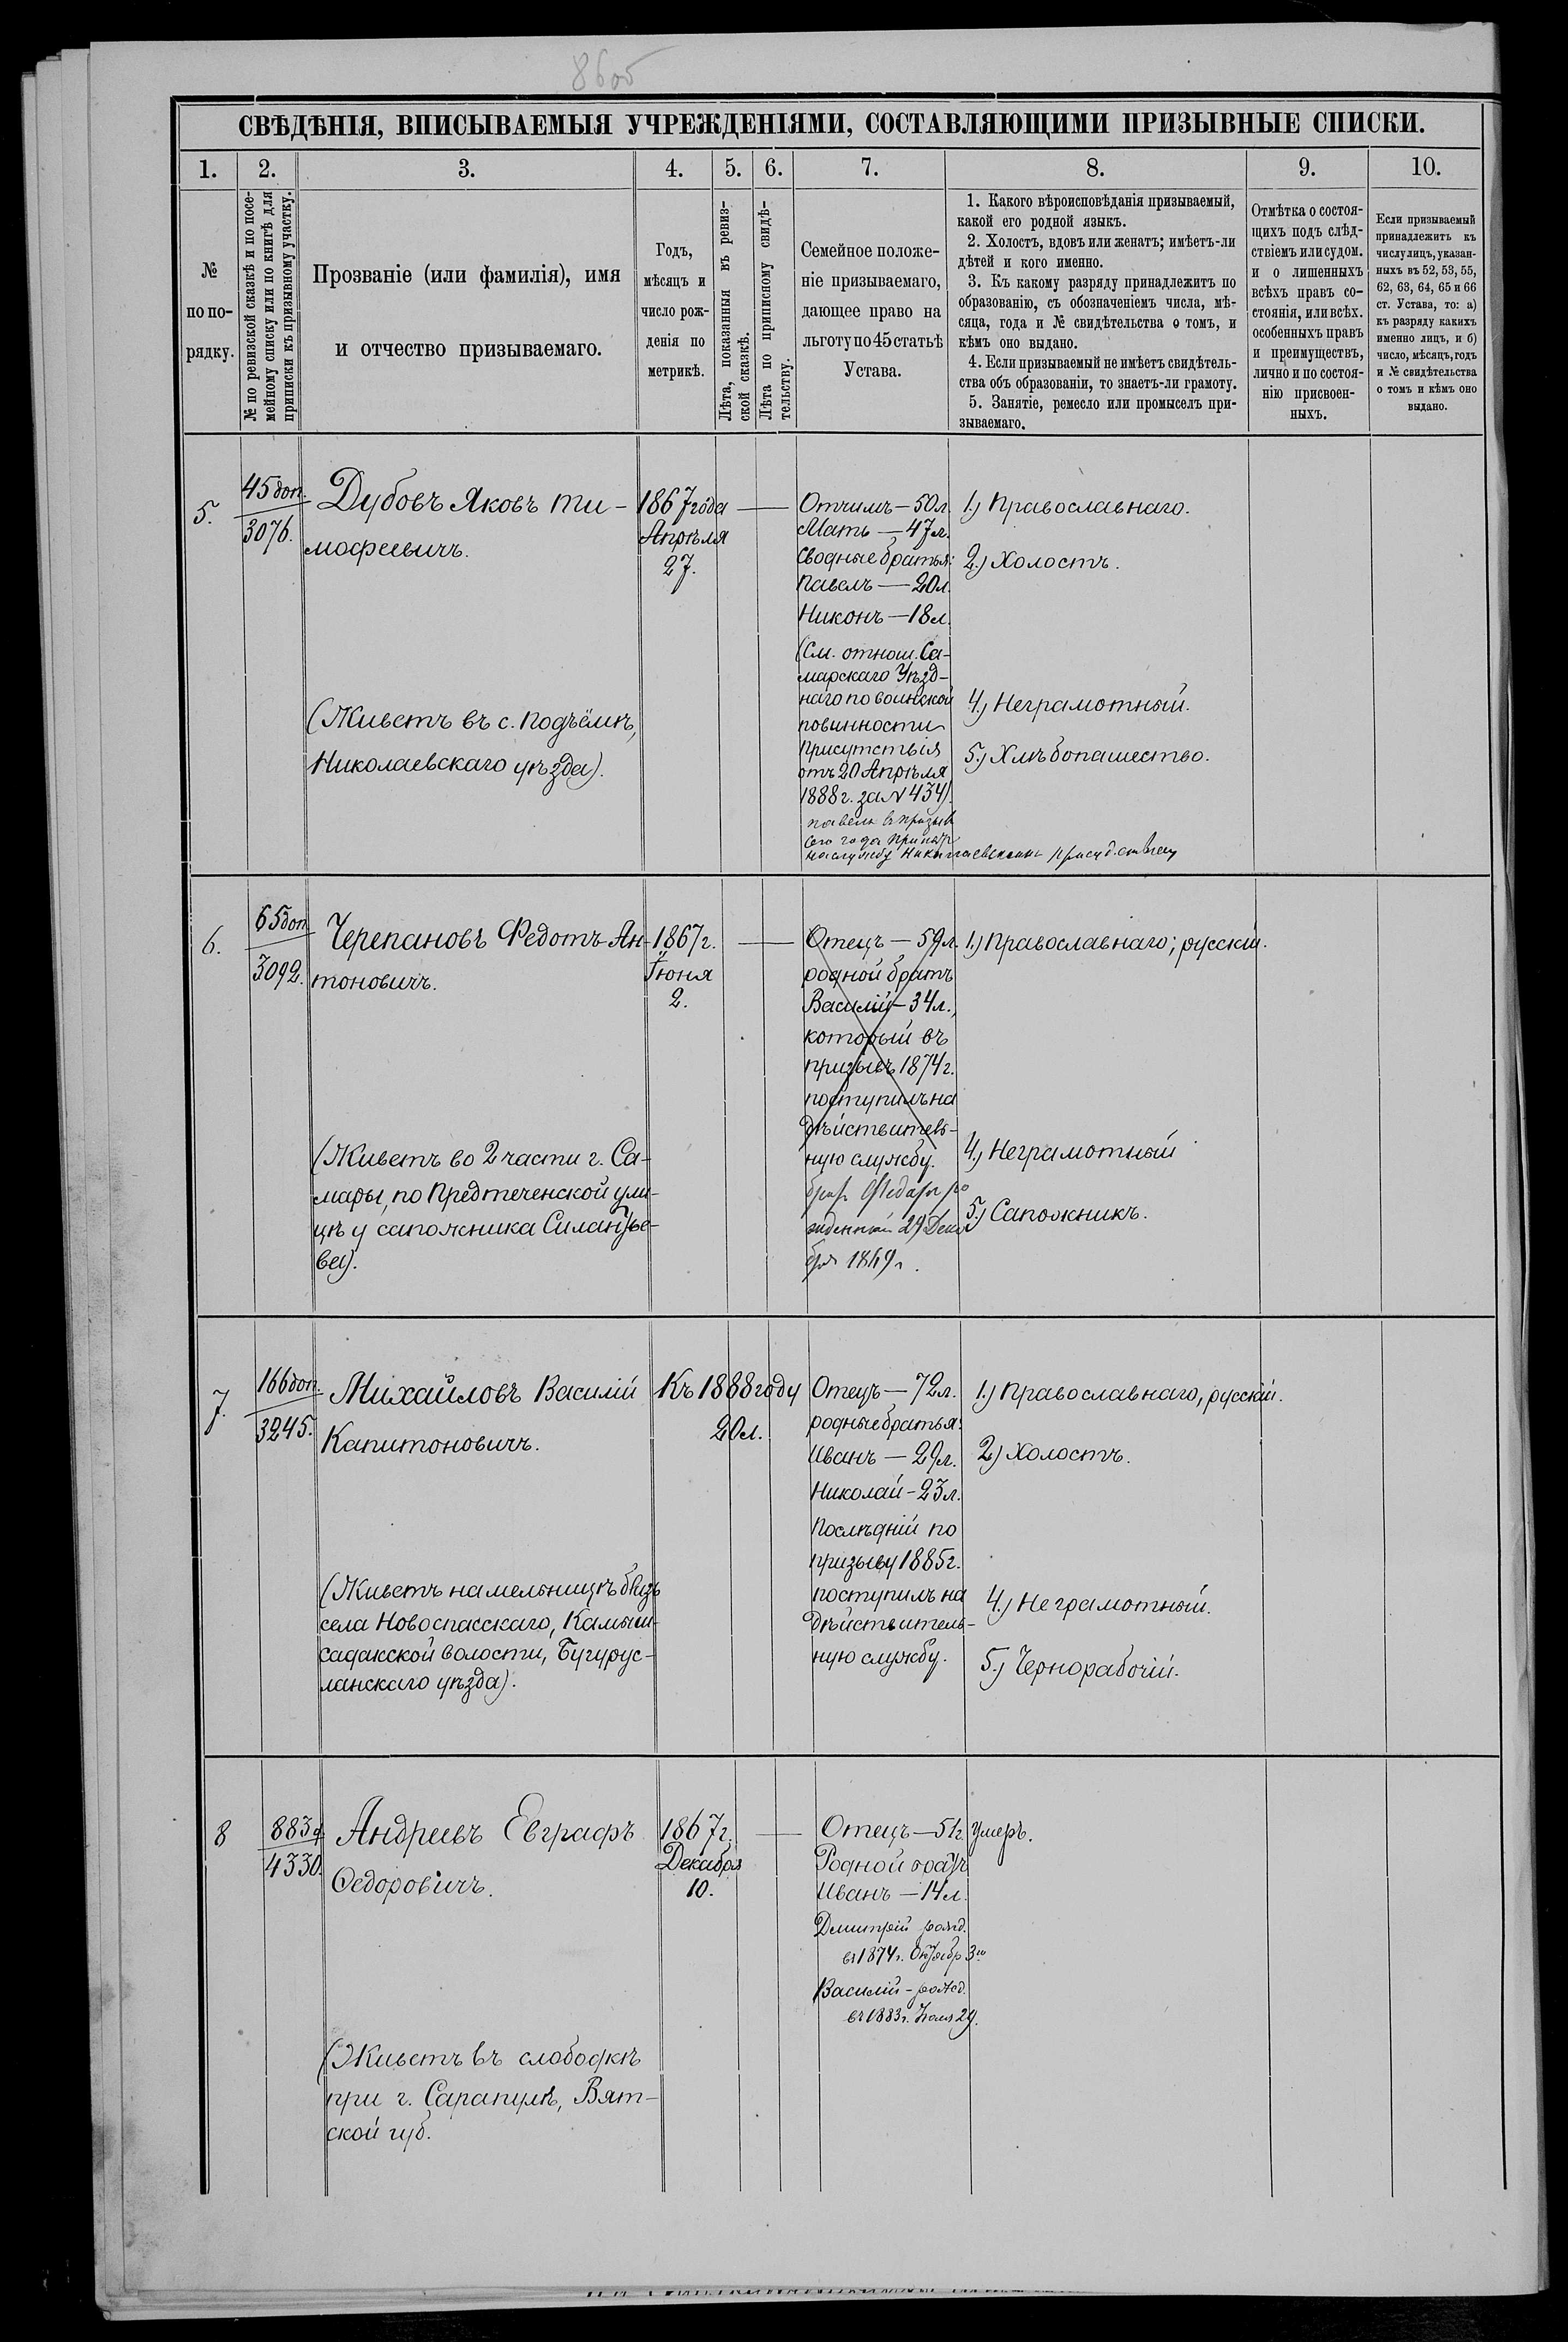 86об
СВѢДѢНІЯ, ВПИСЫВАЕМЫЯ УЧРЕЖДЕНІЯМИ, СОСТАВЛЯЮЩИМИ ПРИЗЫВНЫЕ СПИСКИ.
1.
2.
3.
4.
5.
6.
7.
8.
9.
10.
№
по по-
рядку.
№ по ревизской сказкѣ и по посе-
мейному списку или по книгѣ для
приписки къ призывному участку.
Прозваніе (или фамилія), имя
и отчество призываемаго.
Годъ,
мѣсяцъ и
число рож-
денія по
метрикѣ.
Лѣта, показанныя въ ревиз-
ской сказкѣ.
Лѣта по приписному свидѣ-
тельству.
Семейное положе-
ніе призываемаго,
дающее право на
льготу по 45 статьѣ
Устава.
1. Какого вѣроисповѣданія призываемый,
какой его родной языкъ.
2. Холостъ, вдовъ или женатъ; имѣетъ-ли
дѣтей и кого именно.
3. Къ какому разряду принадлежитъ по
образованію, съ обозначеніемъ числа, мѣ-
сяца, года и № свидѣтельства о томъ, и
кѣмъ оно выдано.
4. Если призываемый не имѣетъ свидѣтель-
ства объ образованіи, то знаетъ-ли грамоту.
5. Занятіе, ремесло или промыселъ при-
зываемаго.
Отмѣтка о состоя-
щихъ подъ слѣд-
ствіемъ или судом.
и о лишенныхъ
всѣхъ правъ со-
стоянія, или всѣх.
особенныхъ правъ
и преимуществъ,
лично и по состоя-
нію присвоен-
ныхъ.
Если призываемый
принадлежитъ къ
числу лицъ, указан-
ныхъ въ 52, 53, 55,
62, 63, 64, 65 и 66
ст. Устава, то: а)
къ разряду какихъ
именно лицъ, и б)
число, мѣсяцъ, годъ
и № свидѣтельства
о томъ и кѣмъ оно
выдано.
5.
45 доп.
3076.
Дубовъ Яковъ Ти-
мофеевичъ.
(Живетъ въ с. Подъёмкѣ,
Николаевскаго уѣзда).
1867 года
Апрѣля
27.
Отчимъ — 50 л.
Мать — 47 л.
Сводные братья:
Павелъ — 20 л.
Никонъ — 18 л.
(См. отнош. Са-
марскаго Уѣзд-
наго по воинской
повинности
Присутствія
отъ 20 Апрѣля
1888 г. за № 434).
Павелъ въ призыв
сего года принят
на службу Николаевскимъ присудствіем
1.) Православнаго.
2.) Холостъ.
4.) Неграмотный.
5.) Хлѣбопашество.
6.
65 доп.
3092.
Черепановъ Федотъ Ан-
тоновичъ.
(Живетъ во 2 части г. Са-
мары, по Предтеченской ули-
цѣ у сапожника Силантье-
ва).
1867 г.
Іюня
2.
Отецъ — 59 л.
родной братъ
Василій — 34 л.,
который въ
призывъ 1874 г.
поступилъ на
дѣйствитель-
ную службу.
брат ро
жденный 29 Дека
бря 1869 г.
1.) Православнаго; русскій.
4.) Неграмотный
5.) Сапожникъ.
7.
166 доп.
3245.
Михайловъ Василій
Капитоновичъ.
(Живетъ на мельницѣ близь
села Новоспасскаго, Камыш-
садакской волости, Бугурус-
ланскаго уѣзда).
Къ 1888 году
20 л.
Отецъ — 72 л.
родные братья:
Иванъ — 29 л.
Николай — 23 л.
Послѣдній по
призыву 1885 г.
поступилъ на
дѣйствитель-
ную службу.
1.) Православнаго, русскій.
2.) Холостъ.
4.) Не грамотный.
5.) Чернорабочій.
8
883 д
4330.
Андреевъ Евграфъ
Федоровичъ.
(Живетъ въ слободкѣ
при г. Сарапулѣ, Вят-
ской губ.
1867 г.
Декабря
10.
Отецъ — 51 г. умеръ.
Родной братъ
Иванъ — 14 л.
Дмитрій рожд.
въ 1874 г. Октябр. 3го
Василій - рожд.
въ 1883 г. 29.